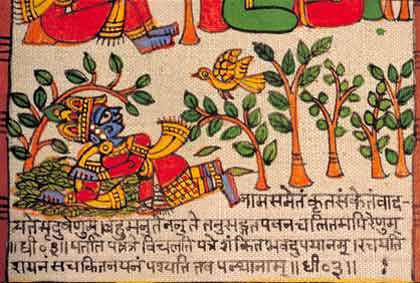 नामसमेतंकृतसंकेतंवाद-
यतेमृदुवेणुम्। बहुमनुतेननुतेतनुसङ्गतपवनचलितमपिरेणुम्
॥धी० ॥ पतति पतत्रे विचलति पत्रे शंकितभवदुपयानम्।रचयति
शयनंसचकितनयनंपश्यतितवपन्थानम्॥धी०३॥